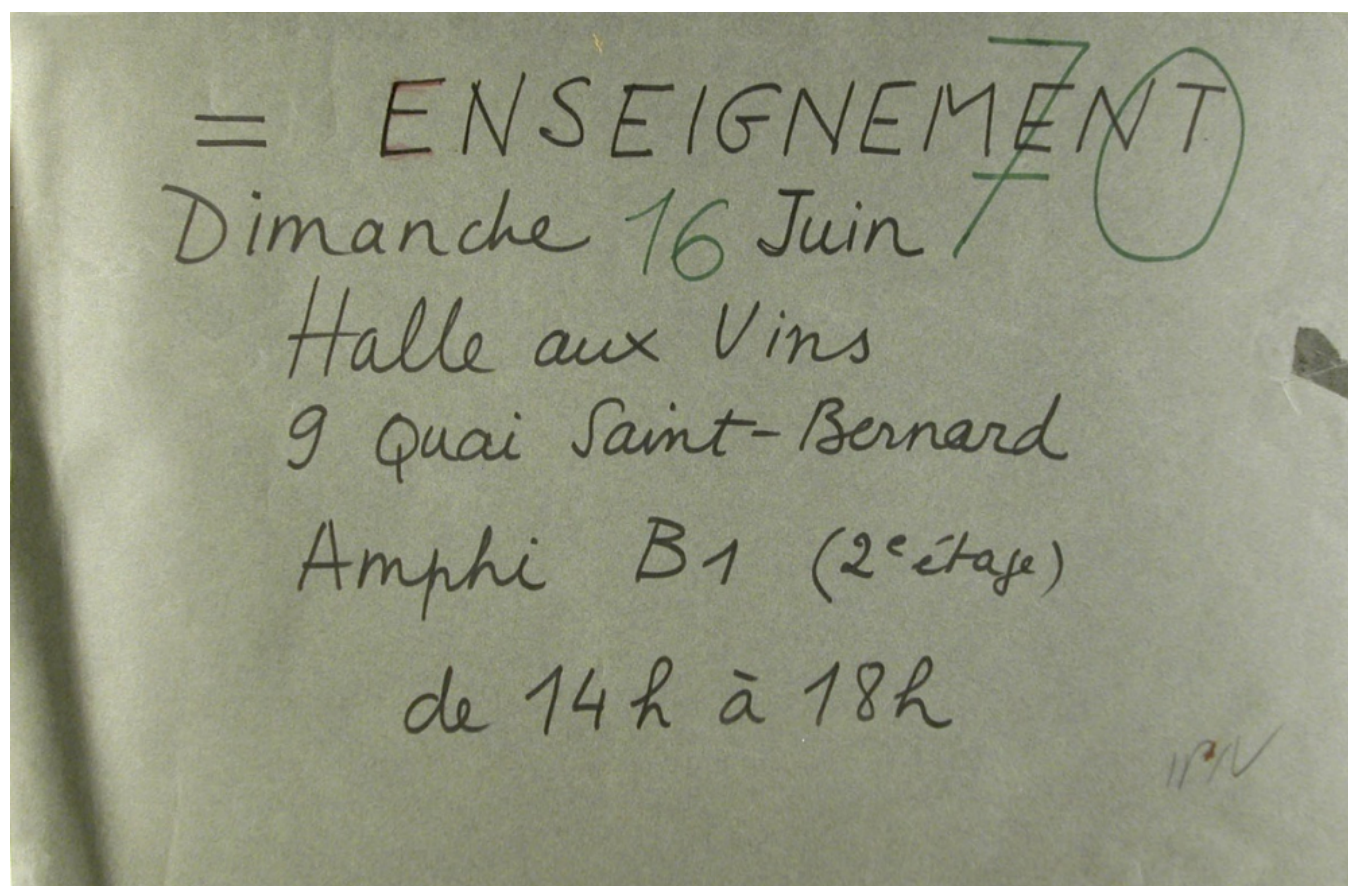 = ENSEIGNEMENT
70
Dimanche 16 Juin
Halle aux Vins
9 Quai Saint-Bernard
Amphi B1 (2e étage)
de 14h à 18h